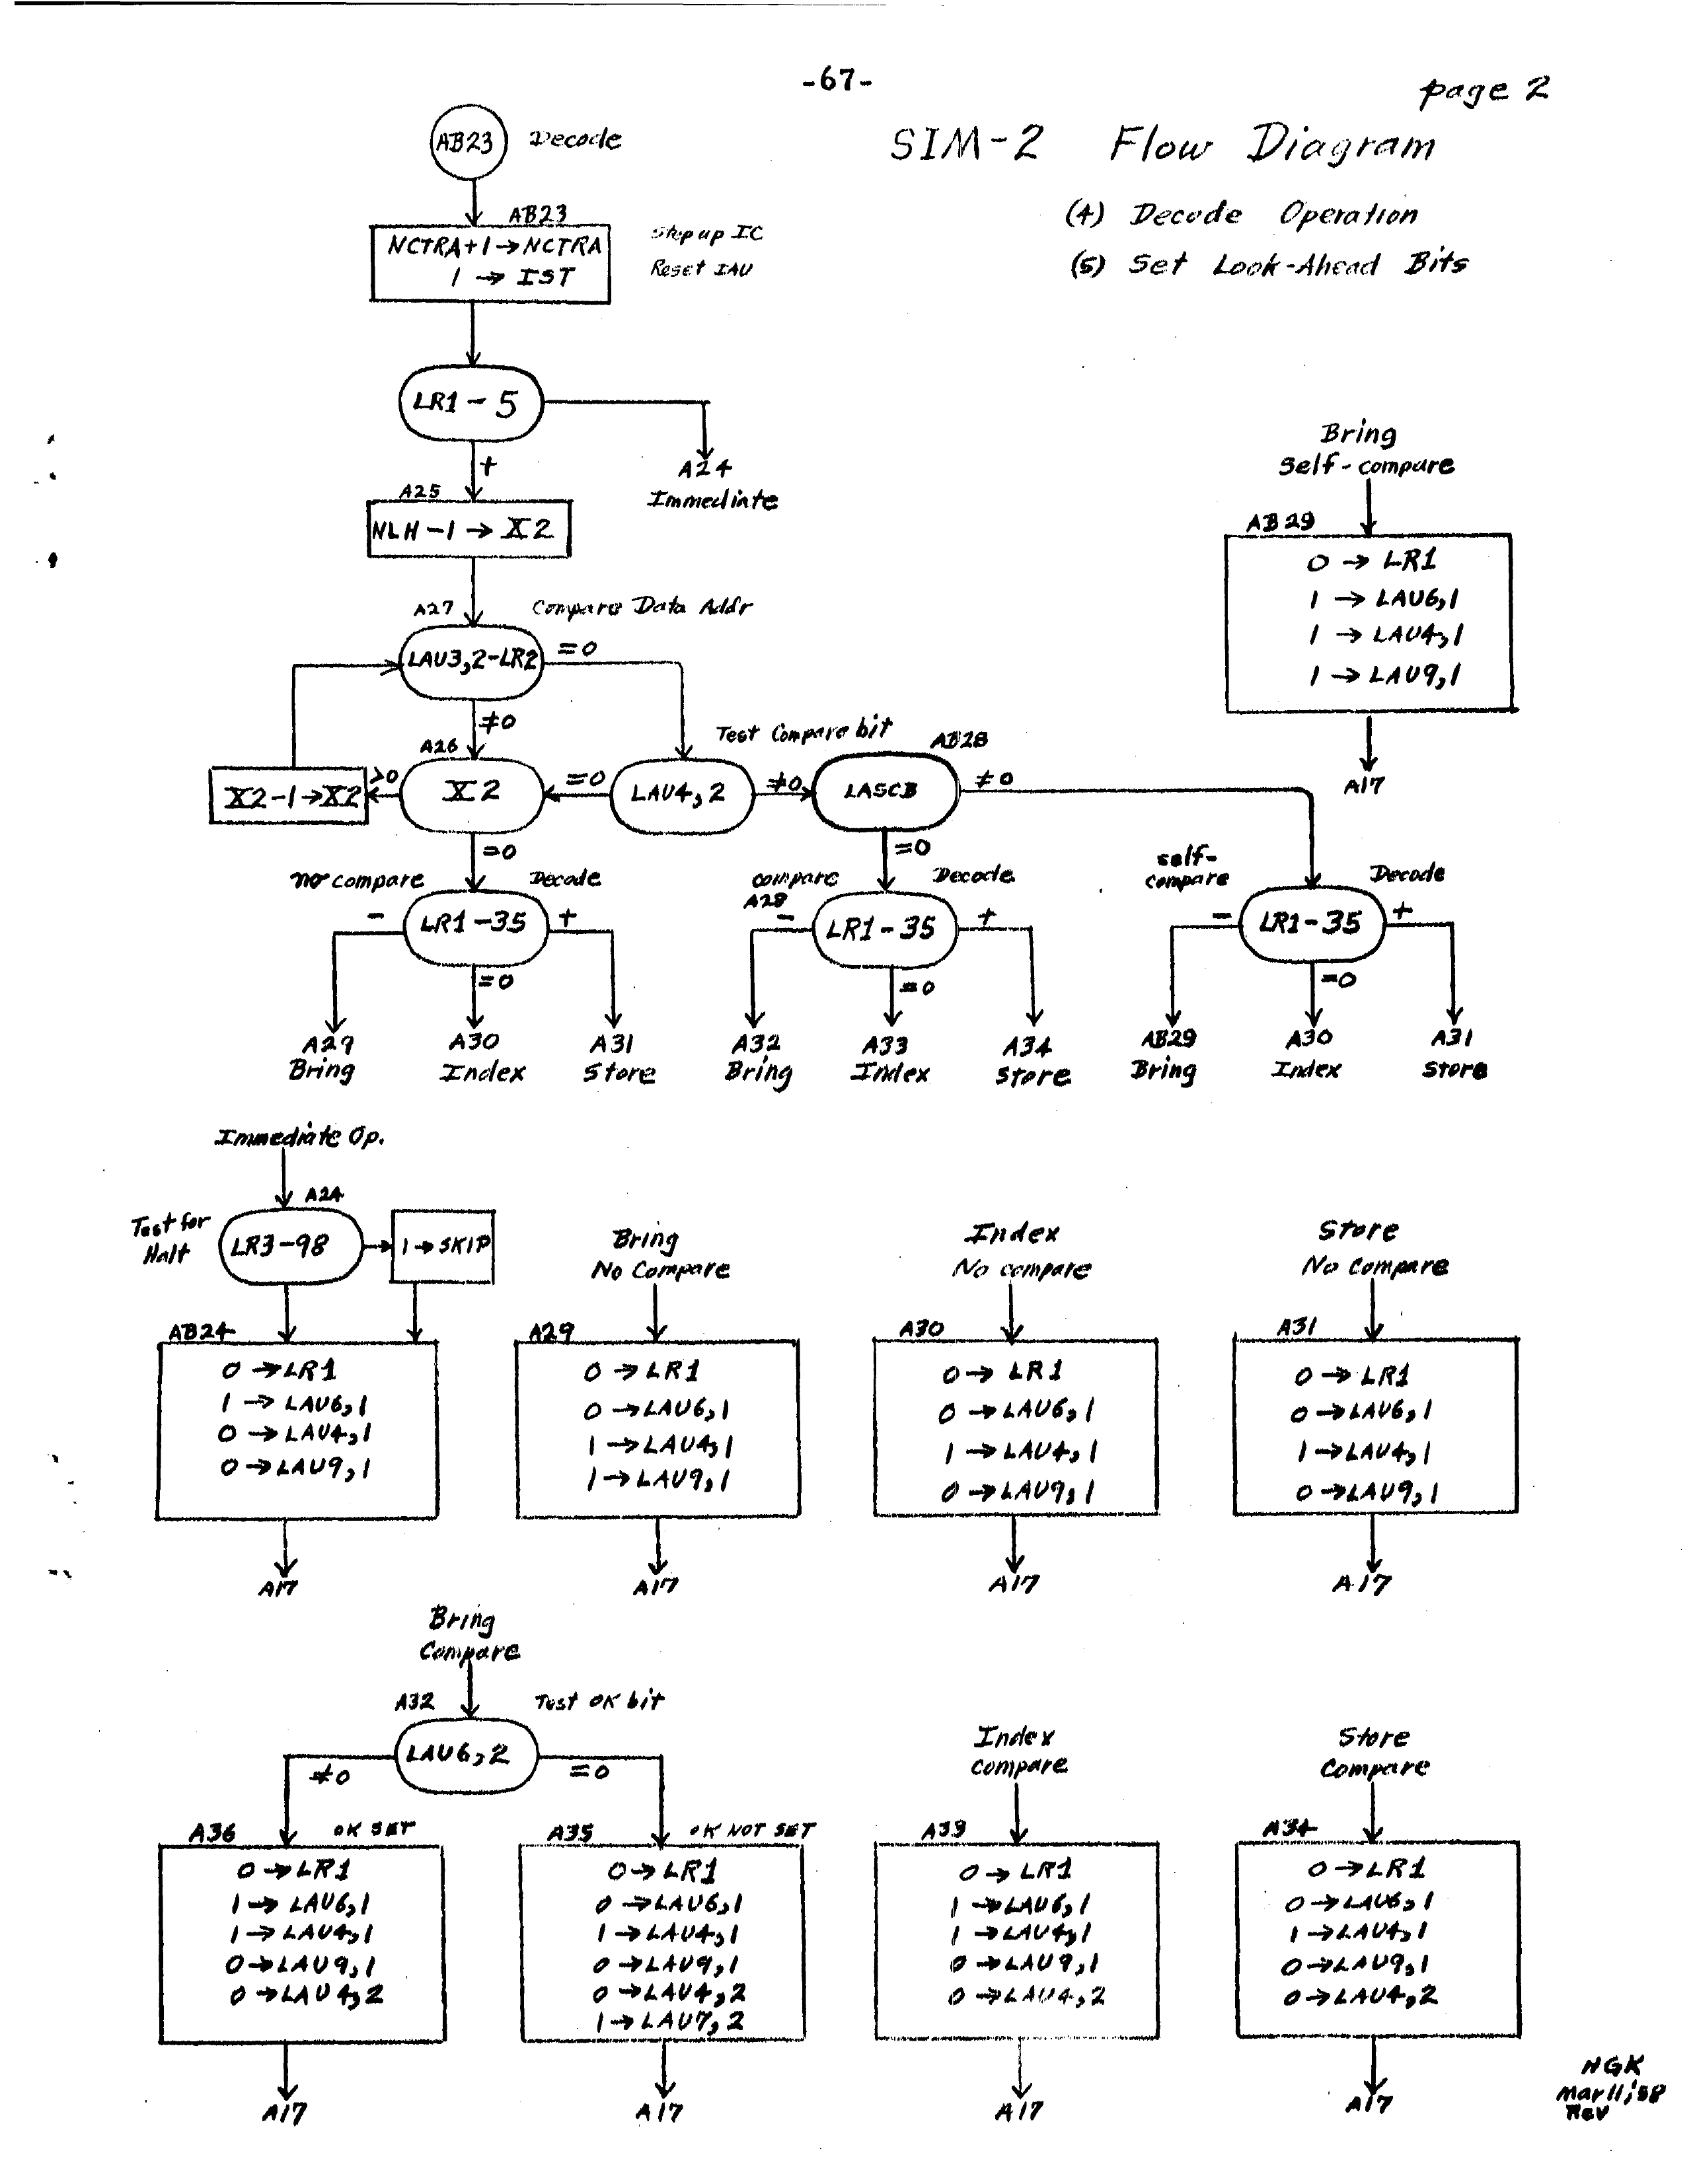 -67-
page 2
SIM-2 Flow Diagram
(4) Decode Operation
(5) Set Look-Ahead Bits
AB23
Decode
AB23
NCTRA+1→NCTRA
1 → IST
Step up IC
Reset IAU
LR1-5
+
A24
Immediate
A25
NLH-1 → X2
A27
Compare Data Addr
LAU3,2-LR2
=0
≠0
A26
X2
>0
X2-1→X2
=0
Test Compare bit
LAU4,2
≠0
AB28
LASCB
≠0
=0
=0
no compare
Decode
-
LR1-35
+
=0
A29
Bring
A30
Index
A31
Store
compare
A28
Decode
-
LR1-35
+
=0
A32
Bring
A33
Index
A34
Store
self-
compare
Decode
-
LR1-35
+
=0
AB29
Bring
A30
Index
A31
Store
Bring
Self-compare
AB29
0 → LR1
1 → LAU6,1
1 → LAU4,1
1 → LAU9,1
A17
Immediate Op.
A24
Test for
Halt
LR3-98
1→SKIP
AB24
0 →LR1
1 → LAU6,1
0 → LAU4,1
0 →LAU9,1
A17
Bring
No Compare
A29
0 → LR1
0 →LAU6,1
1 →LAU4,1
1→LAU9,1
A17
Index
No compare
A30
0→ LR1
0 →LAU6,1
1 →LAU4,1
0 →LAU9,1
A17
Store
No Compare
A31
0 → LR1
0 →LAU6,1
1→LAU4,1
0→LAU9,1
A17
Bring
Compare
A32
Test OK bit
LAU6,2
≠0
=0
A36
OK SET
0→LR1
1→ LAU6,1
1→ LAU4,1
0→LAU9,1
0→LAU4,2
A17
A35
OK NOT SET
0→LR1
0 →LAU6,1
1→LAU4,1
0→LAU9,1
0→LAU4,2
1→LAU7,2
A17
Index
compare
A33
0→ LR1
1 →LAU6,1
1 →LAU4,1
0→LAU9,1
0→LAU4,2
A17
Store
Compare
A34
0→LR1
0→LAU6,1
1→LAU4,1
0→LAU9,1
0→LAU4,2
A17
NGK
Mar 11, '58
Rev